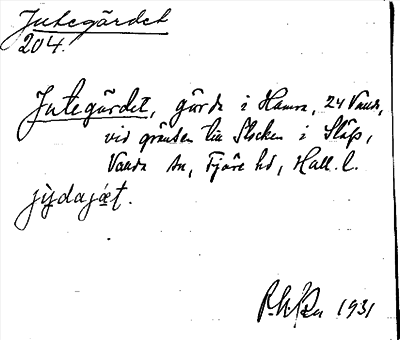 Jutegärdet
204.
Jutegärdet, gärde i Hamra, 24 Vanda,
vid gränsen till Stocken i Släps,
Vanda sn, Fjäre hd, Hall. l.
jy̱dajæt.
1931